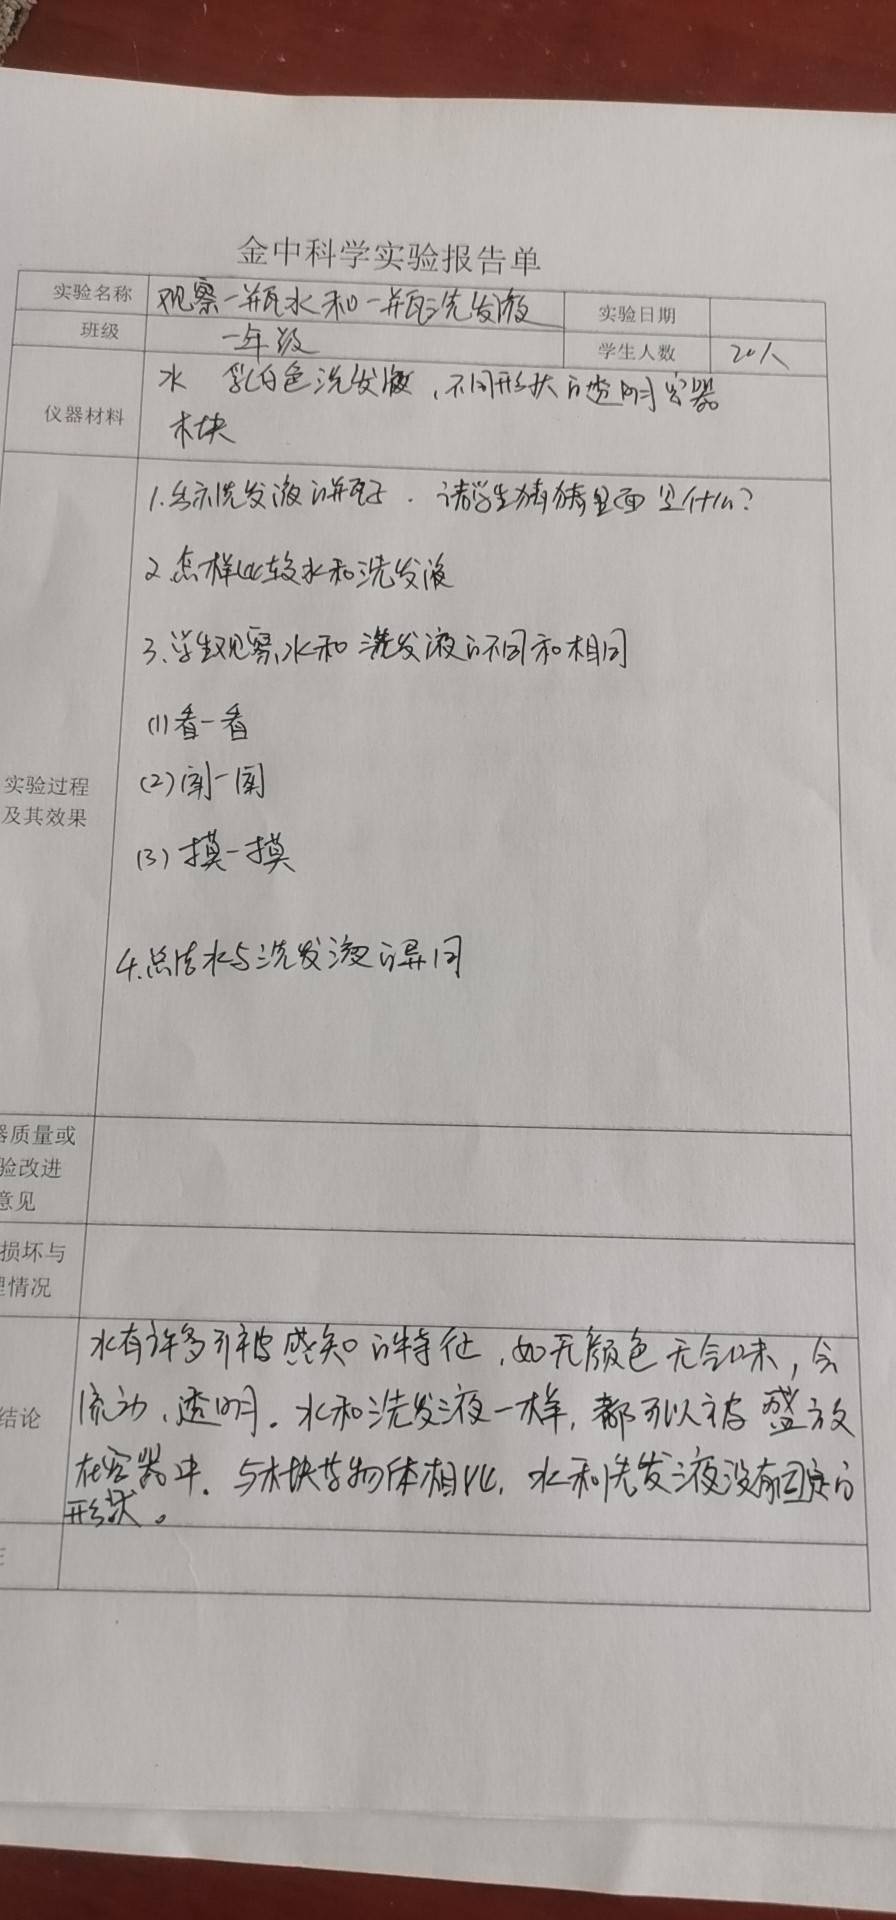 金中科学实验报告单
实验名称 观察一瓶水和一瓶洗发液 实验日期
班级 一年级 学生人数 20人
水 乳白色洗发液,不同形状的透明容器
仪器材料
木块
1.出示洗发液的瓶子.请学生猜猜里面是什么?
2.怎样比较水和洗发液
3.学生观察水和洗发液的不同和相同
(1)看一看
实验过程
(2)闻一闻
及其效果
(3)摸一摸
4.总结水与洗发液的异同
器质量或
验改进
意见
损坏与
理情况
水有许多可被感知的特征,如无颜色无气味,会
结论 流动、透明。水和洗发液一样,都可以被盛放
在容器中.与木块等物体相比,水和洗发液没有固定的
形状。